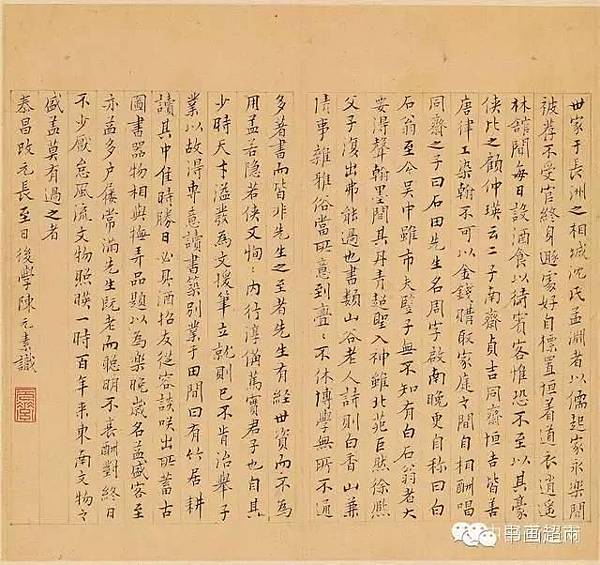 世家于長洲之相城沈氏孟淵者以儒起家永樂間
被薦不受官終身家好自標置恒著道衣逍遙
林館間每日設酒食以待賓客惟恐不至以其豪
俠比之顧仲瑛云二子南齋貞吉同齋恒吉皆善
唐律工染翰不可以金錢購取家庭之間自相酬唱
同齋之子曰石田先生名周字啟南晚更自稱曰白
石翁至今吳中雖市夫豎子無不知有白石翁者大
安得聲翰墨間其丹青超聖入神雖北苑巨然徐熙
父子復出弗能過也書類山谷老人詩則白香山兼
情事雜雅俗當所意到亹〻不休博學無所不通
多著書而皆非先生之至者先生有經世資而不為
用盖若隱若俠又恂〻內行淳備篤實君子也自其
少時天才溢發為文援筆立就則已不肯治舉子
業以故得專意讀書築別業于田間曰有竹居耕
讀其中佳時勝日必具酒招友從容談咲出所蓄古
圖書器物相與撫弄品題以為樂晚歲名益盛客至
亦益多戶屨常滿先生既老而聰明不衰酬對終日
不少厭怠風流文物照暎一時百年來東南文物之
盛盖莫有過之者
泰昌改元長至日後學陳元素識
书画超市